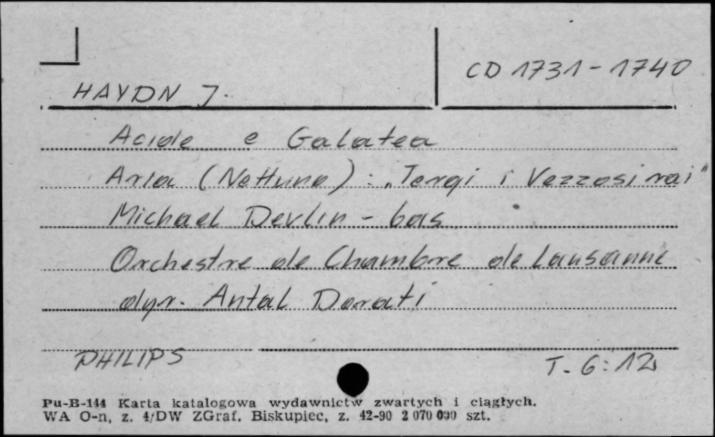 CD 1731-1740
HAYDN J.
Acide e Galatea
Aria (Nettuno): „Tergi i Vezzosi rai"
Michael Devlin - bas
Orchestre de Chambre de Lausanne
dyr. Antal Dorati
PHILIPS T. 6:12
Pu-B-144 Karta katalogowa wydawnictw zwartych i ciągłych.
WA O-n, z. 4/DW ZGraf. Biskupiec, z. 42-90 2 070 000 szt.